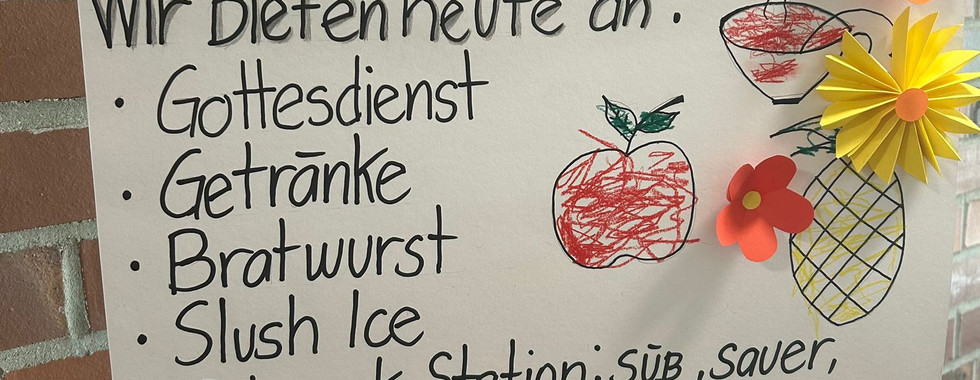 Wir bieten heute an:
• Gottesdienst
• Getränke
• Bratwurst
• Slush Ice
Station: süß, sauer,